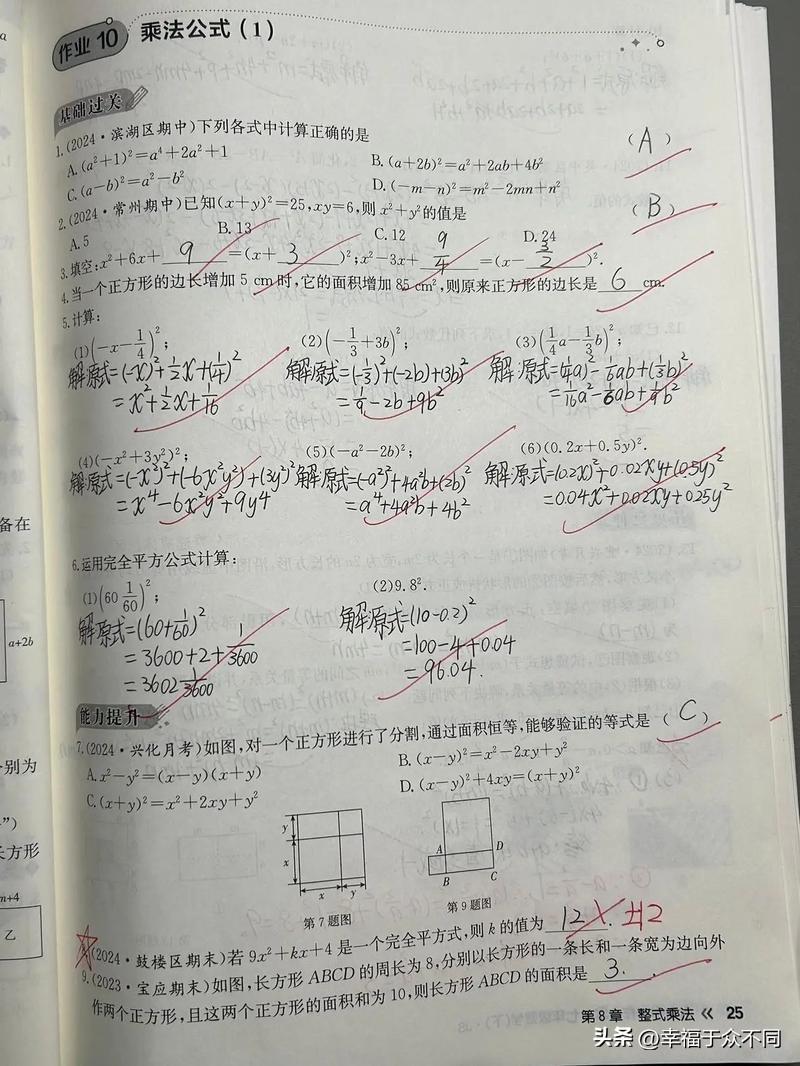 作业 10 乘法公式(1)
基础过关
1.(2024·滨湖区期中)下列各式中计算正确的是 (A)
A.(a²+1)²=a⁴+2a²+1 B.(a+2b)²=a²+2ab+4b²
C.(a-b)²=a²-b² D.(-m-n)²=m²-2mn+n²
2.(2024·常州期中)已知(x+y)²=25,xy=6,则 x²+y²的值是 (B)
A.5 B.13 C.12 D.24
3.填空:x²+6x+ 9 =(x+ 3 )²;x²-3x+ 9/4 =(x- 3/2 )².
4.当一个正方形的边长增加 5 cm 时,它的面积增加 85 cm²,则原来正方形的边长是 6 cm.
5.计算:
(1)(-x-1/4)²; (2)(-1/3+3b)²; (3)(1/4a-1/3b)²;
解:原式=(-x)²+1/2x+(1/4)² 解:原式=(-1/3)²+(-2b)+(3b)² 解:原式=(1/4a)²-1/6ab+(1/3b)²
=x²+1/2x+1/16 =1/9-2b+9b² =1/16a²-1/6ab+1/9b²
(4)(-x²+3y²)²; (5)(-a²-2b)²; (6)(0.2x+0.5y)².
解:原式=(-x²)²+(-6x²y²)+(3y²)² 解:原式=(-a²)²+4a²b+(2b)² 解:原式=(0.2x)²+0.02xy+(0.5y)²
=x⁴-6x²y²+9y4 =a⁴+4a²b+4b² =0.04x²+0.02xy+0.25y²
6.运用完全平方公式计算:
(1)(60 1/60)²; (2)9.8².
解:原式=(60+1/60)² 解:原式=(10-0.2)²
=3600+2+1/3600 =100-4+0.04
=3602 1/3600 =96.04.
能力提升
7.(2024·兴化月考)如图,对一个正方形进行了分割,通过面积恒等,能够验证的等式是 (C)
A.x²-y²=(x-y)(x+y) B.(x-y)²=x²-2xy+y²
C.(x+y)²=x²+2xy+y² D.(x-y)²+4xy=(x+y)²
y
x
x y
A D
B C
第 7 题图 第 9 题图
(2024·鼓楼区期末)若 9x²+kx+4 是一个完全平方式,则 k 的值为 12 . ±12
9.(2023·宝应期末)如图,长方形 ABCD 的周长为 8,分别以长方形的一条长和一条宽为边向外
作两个正方形,且这两个正方形的面积和为 10,则长方形 ABCD 的面积是 3. .
第 8 章 整式乘法 25
头条 @幸福于众不同
a
备在
a+2b
分别为
”)
长方形
m+4
乙